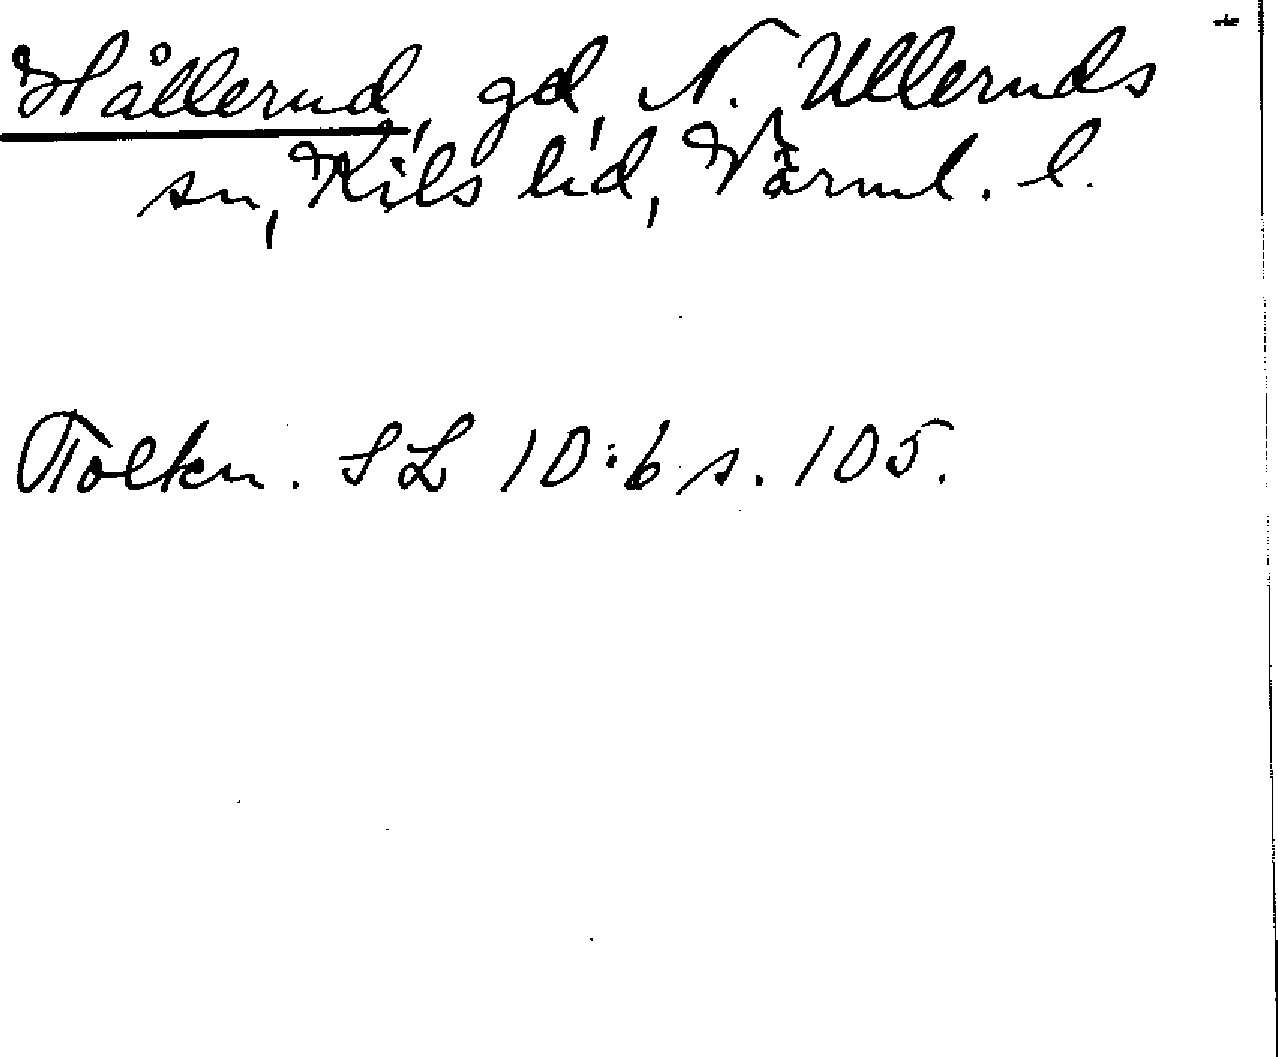 Hållerud, gd, N. Ulleruds
sn, Kils hd, Värml. l.
Tolkn. SL 10:6 s. 105.